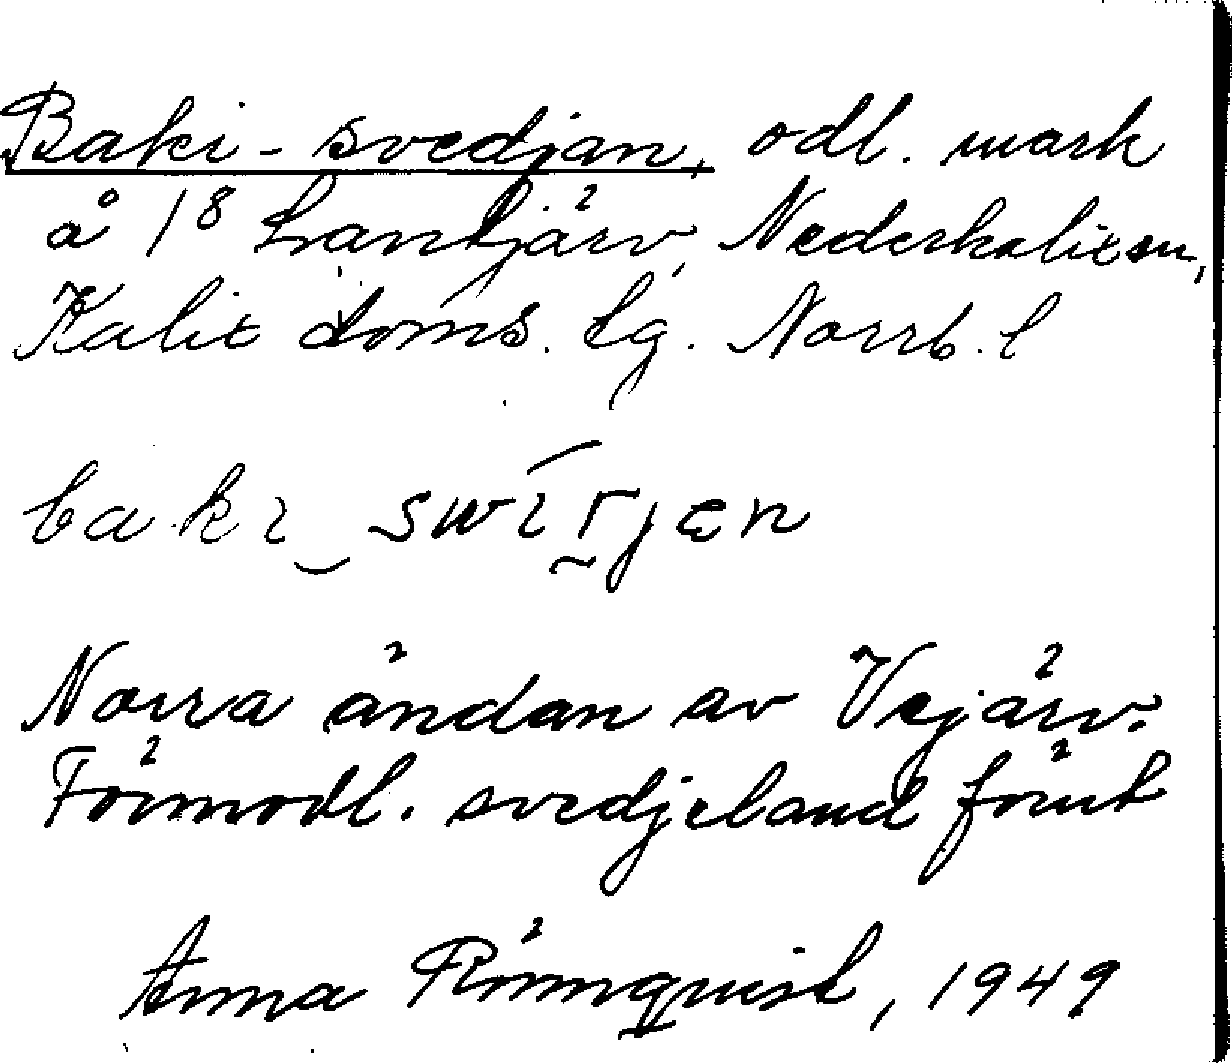 Baki-svedjan, odl. mark
å 1⁸ Lantjärv, Nederkalix sn,
Kalix doms. lg. Norrb. l
baki‿swir̰jæn
Norra ändan av Vejärv.
Förmodl. svedjeland förut
Anna Rönnquist, 1949